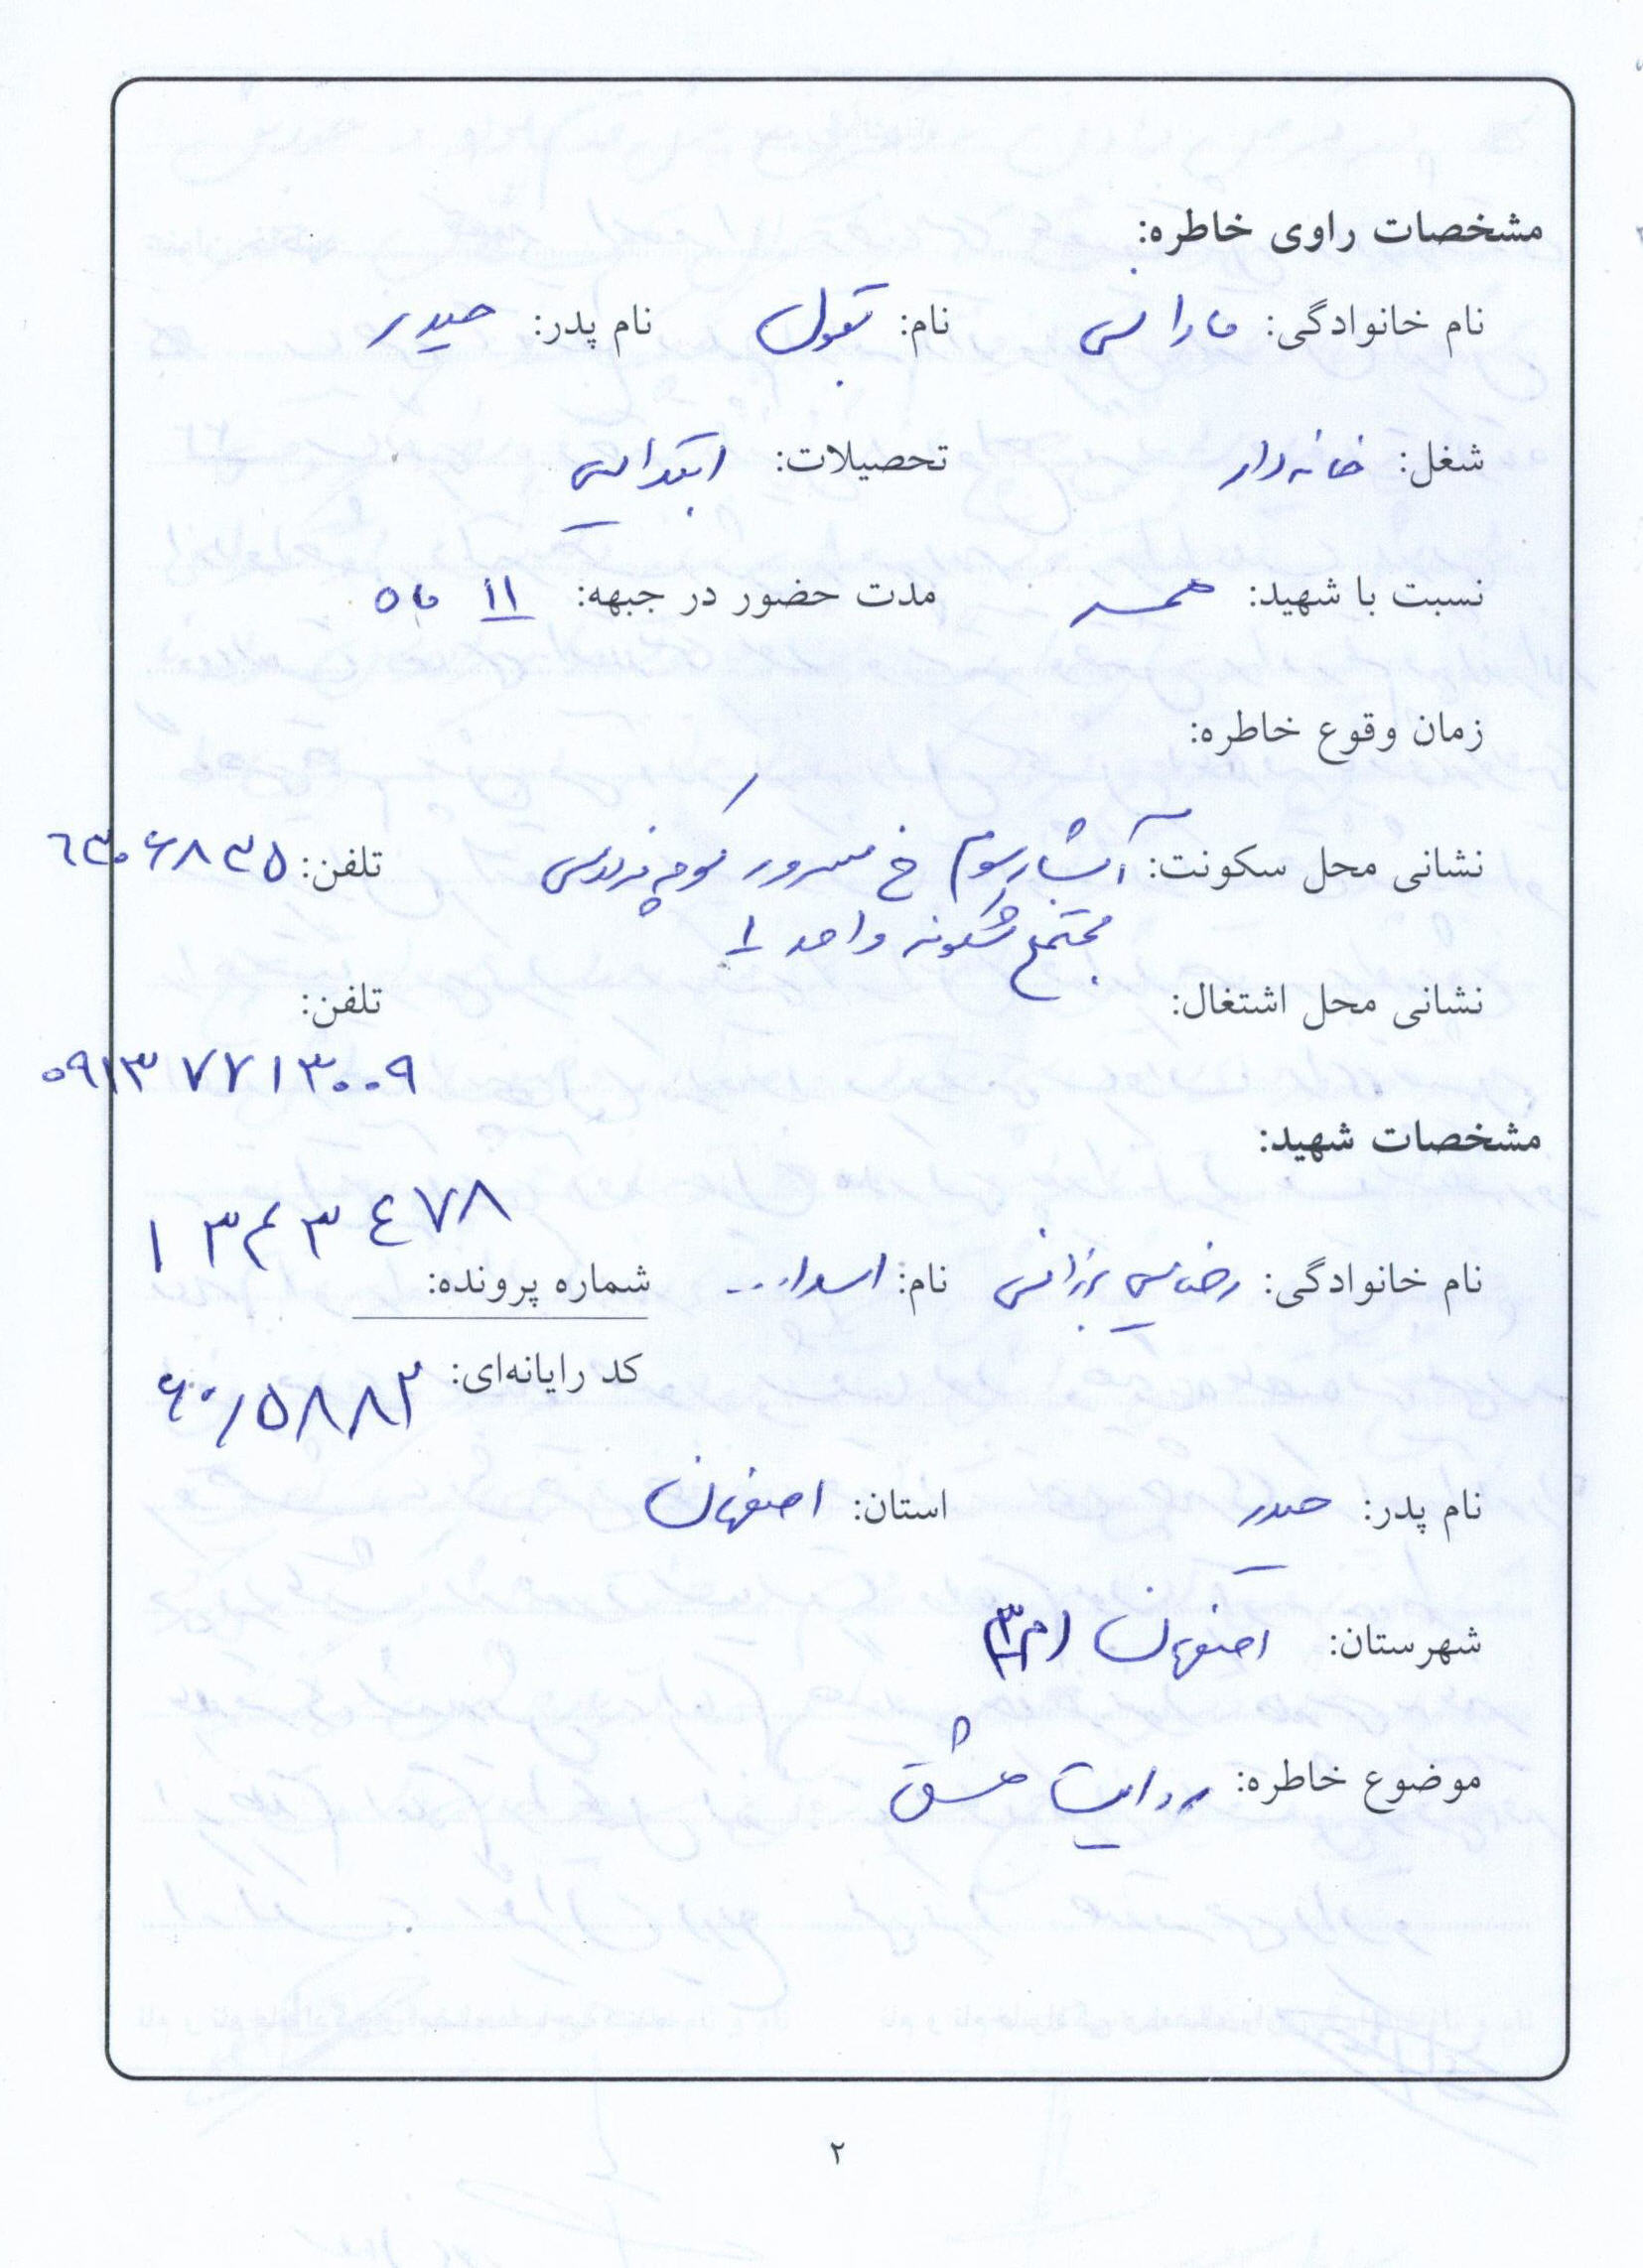 مشخصات راوی خاطره:
نام خانوادگی: مارانی نام: بتول نام پدر: حیدر
شغل: خانه‌دار تحصیلات: ابتدایی
نسبت با شهید: همسر مدت حضور در جبهه: ۱۱ ماه
زمان وقوع خاطره:
نشانی محل سکونت: آبشار سوم خ مسرور کوچه فردوسی تلفن: ۶۳۰۶۸۳۵
مجتمع شکوفه واحد ۱
نشانی محل اشتغال: تلفن:
۰۹۱۳۷۷۱۳۰۰۹
مشخصات شهید:
۱۳۲۳۴۷۸
نام خانوادگی: رضایی برزانی نام: اسدا... شماره پرونده:
کد رایانه‌ای: ۶۰/۵۸۸۲
نام پدر: حیدر استان: اصفهان
شهرستان: اصفهان (م۳)
موضوع خاطره: روایت عشق
۲